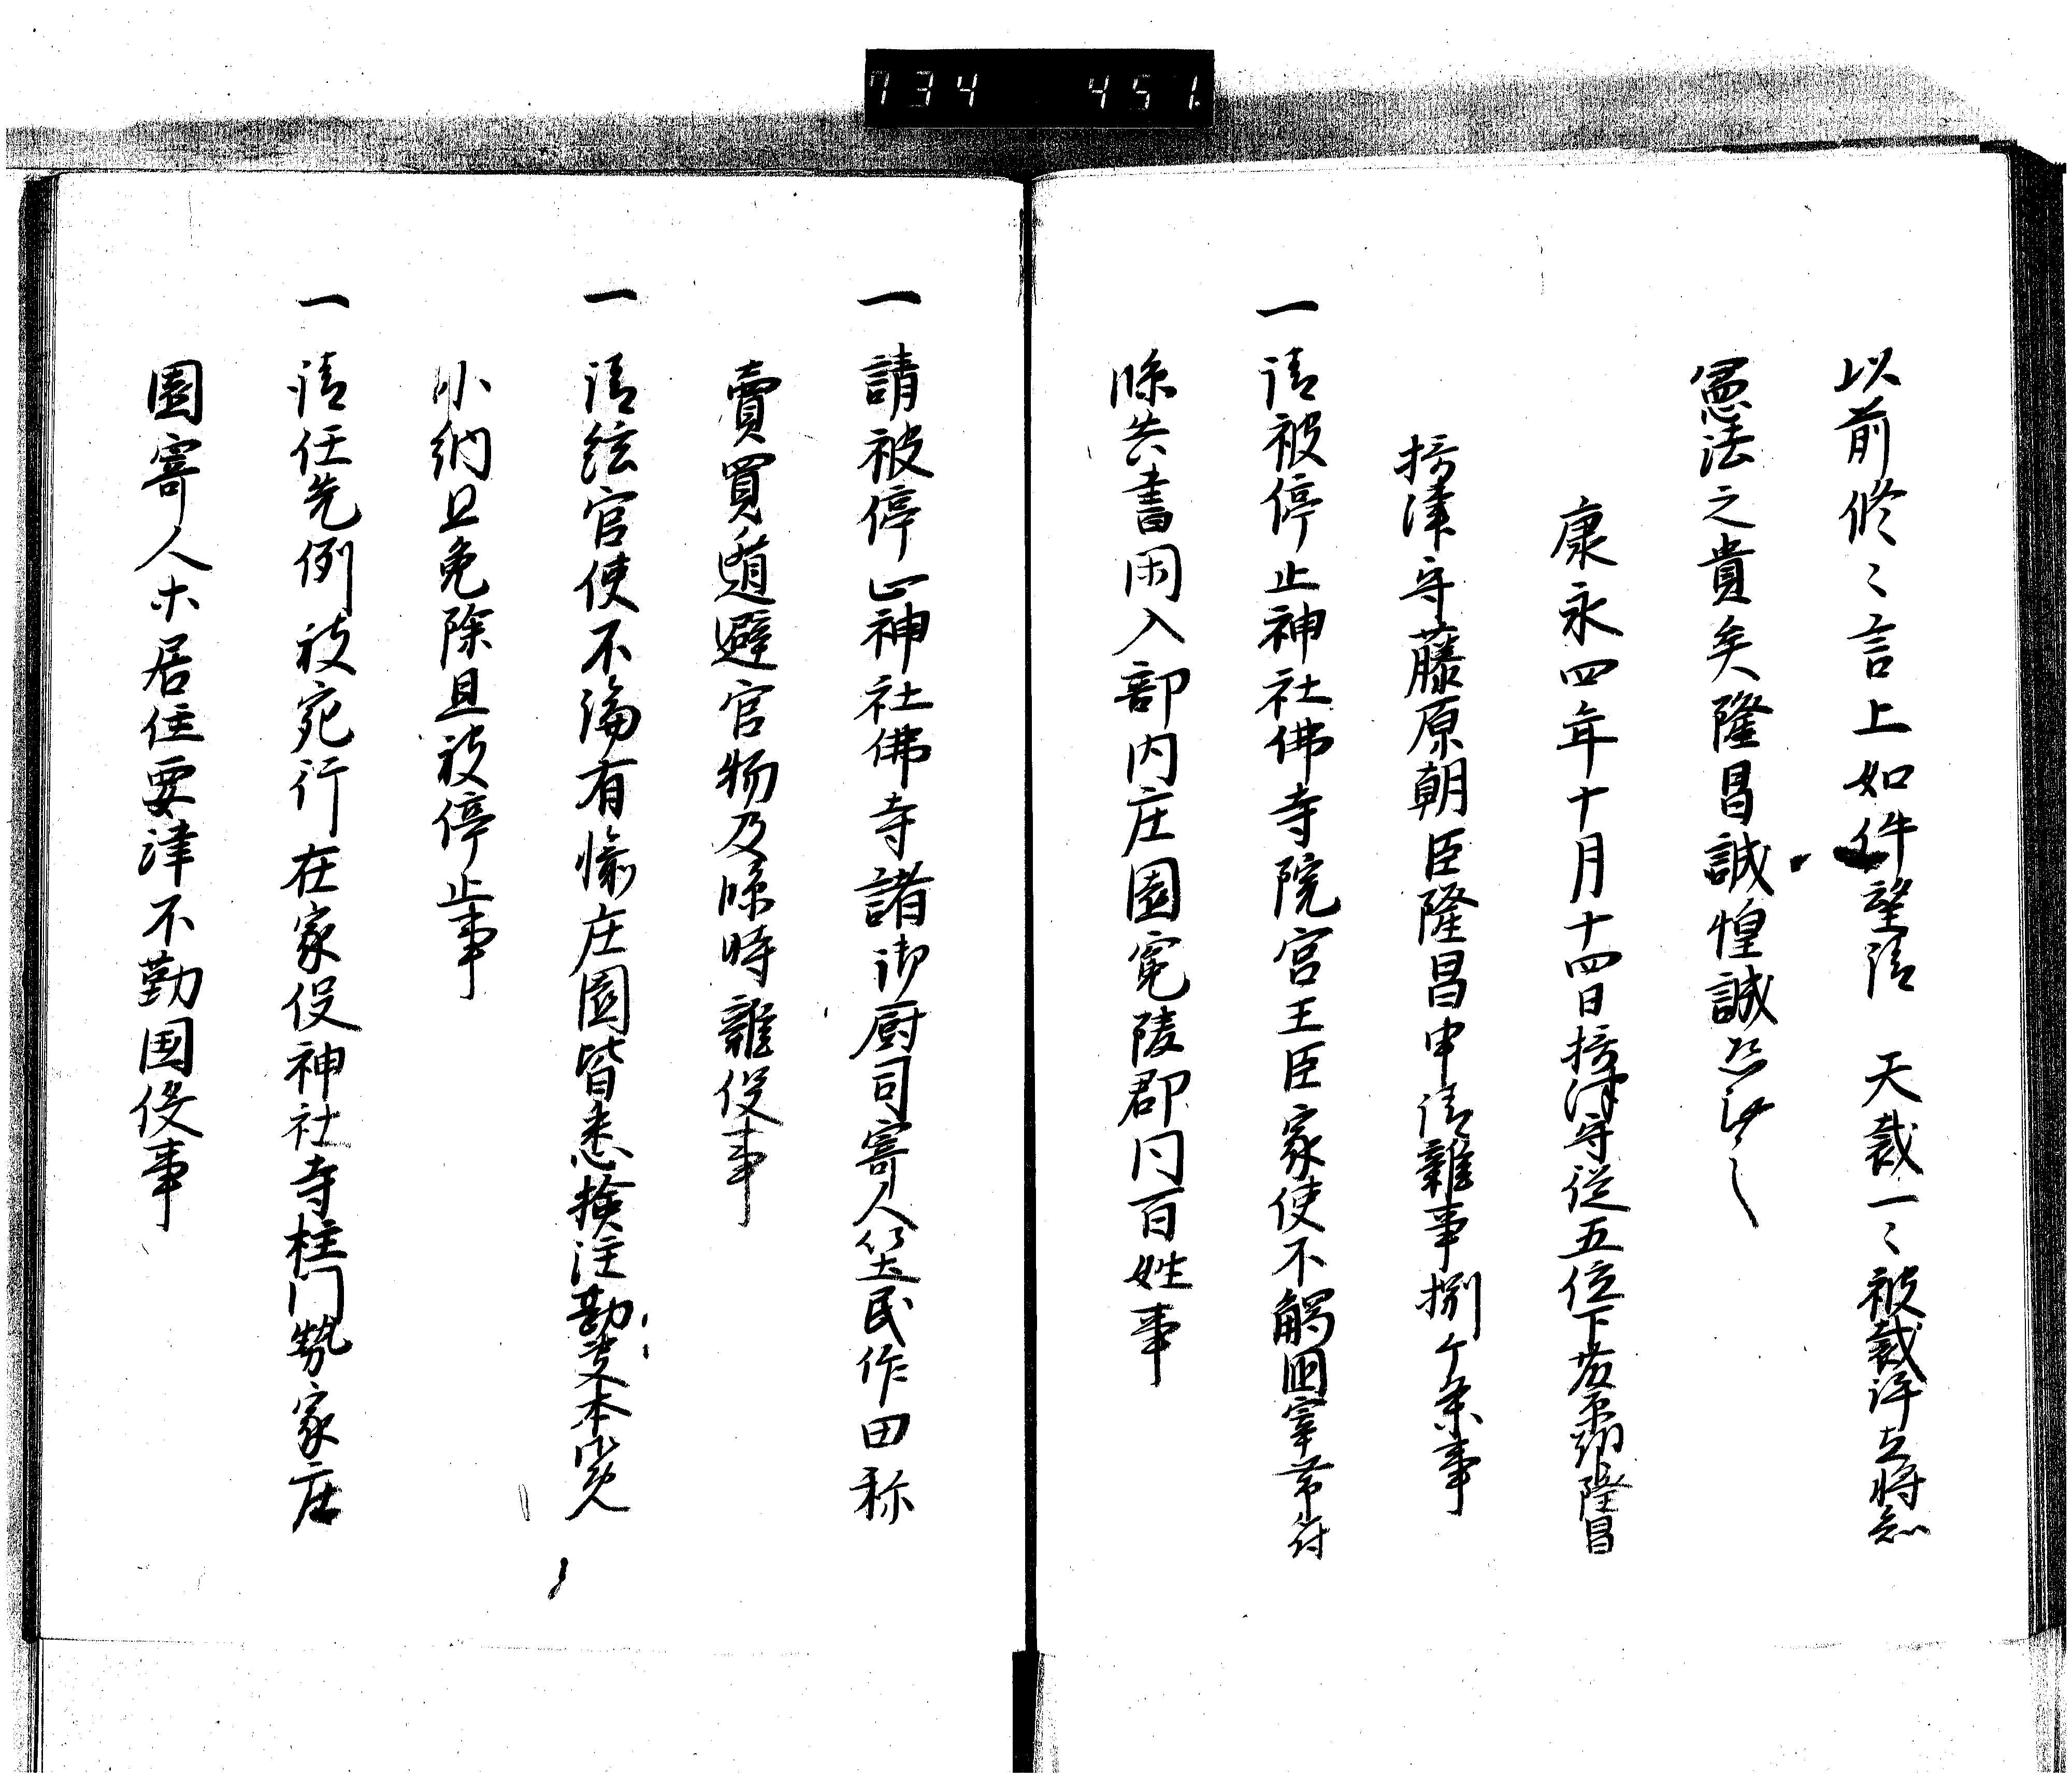 734 451
以前條々言上如件望請　天裁一々被裁許者将知
憲法之貴矣隆昌誠惶誠恐謹〻
康永四年十月十四日摂津守従五位下藤原朝臣隆昌
摂津守藤原朝臣隆昌申請雑事捌ケ条事
一請被停止神社佛寺院宮王臣家使不觸国宰帯付
牒告書囙入部内庄園寃陵郡内百姓事
一請被停止神社佛寺諸御厨司寄人等土民作田称
賣買遁避官物及臨時雑役事
一請給官使不論有 庄園皆悉検注勘 本免
外納且免除且被停止事
一請任先例被宛行在家役神社寺社門勢家庄
園寄人木居住要津不勤国役事